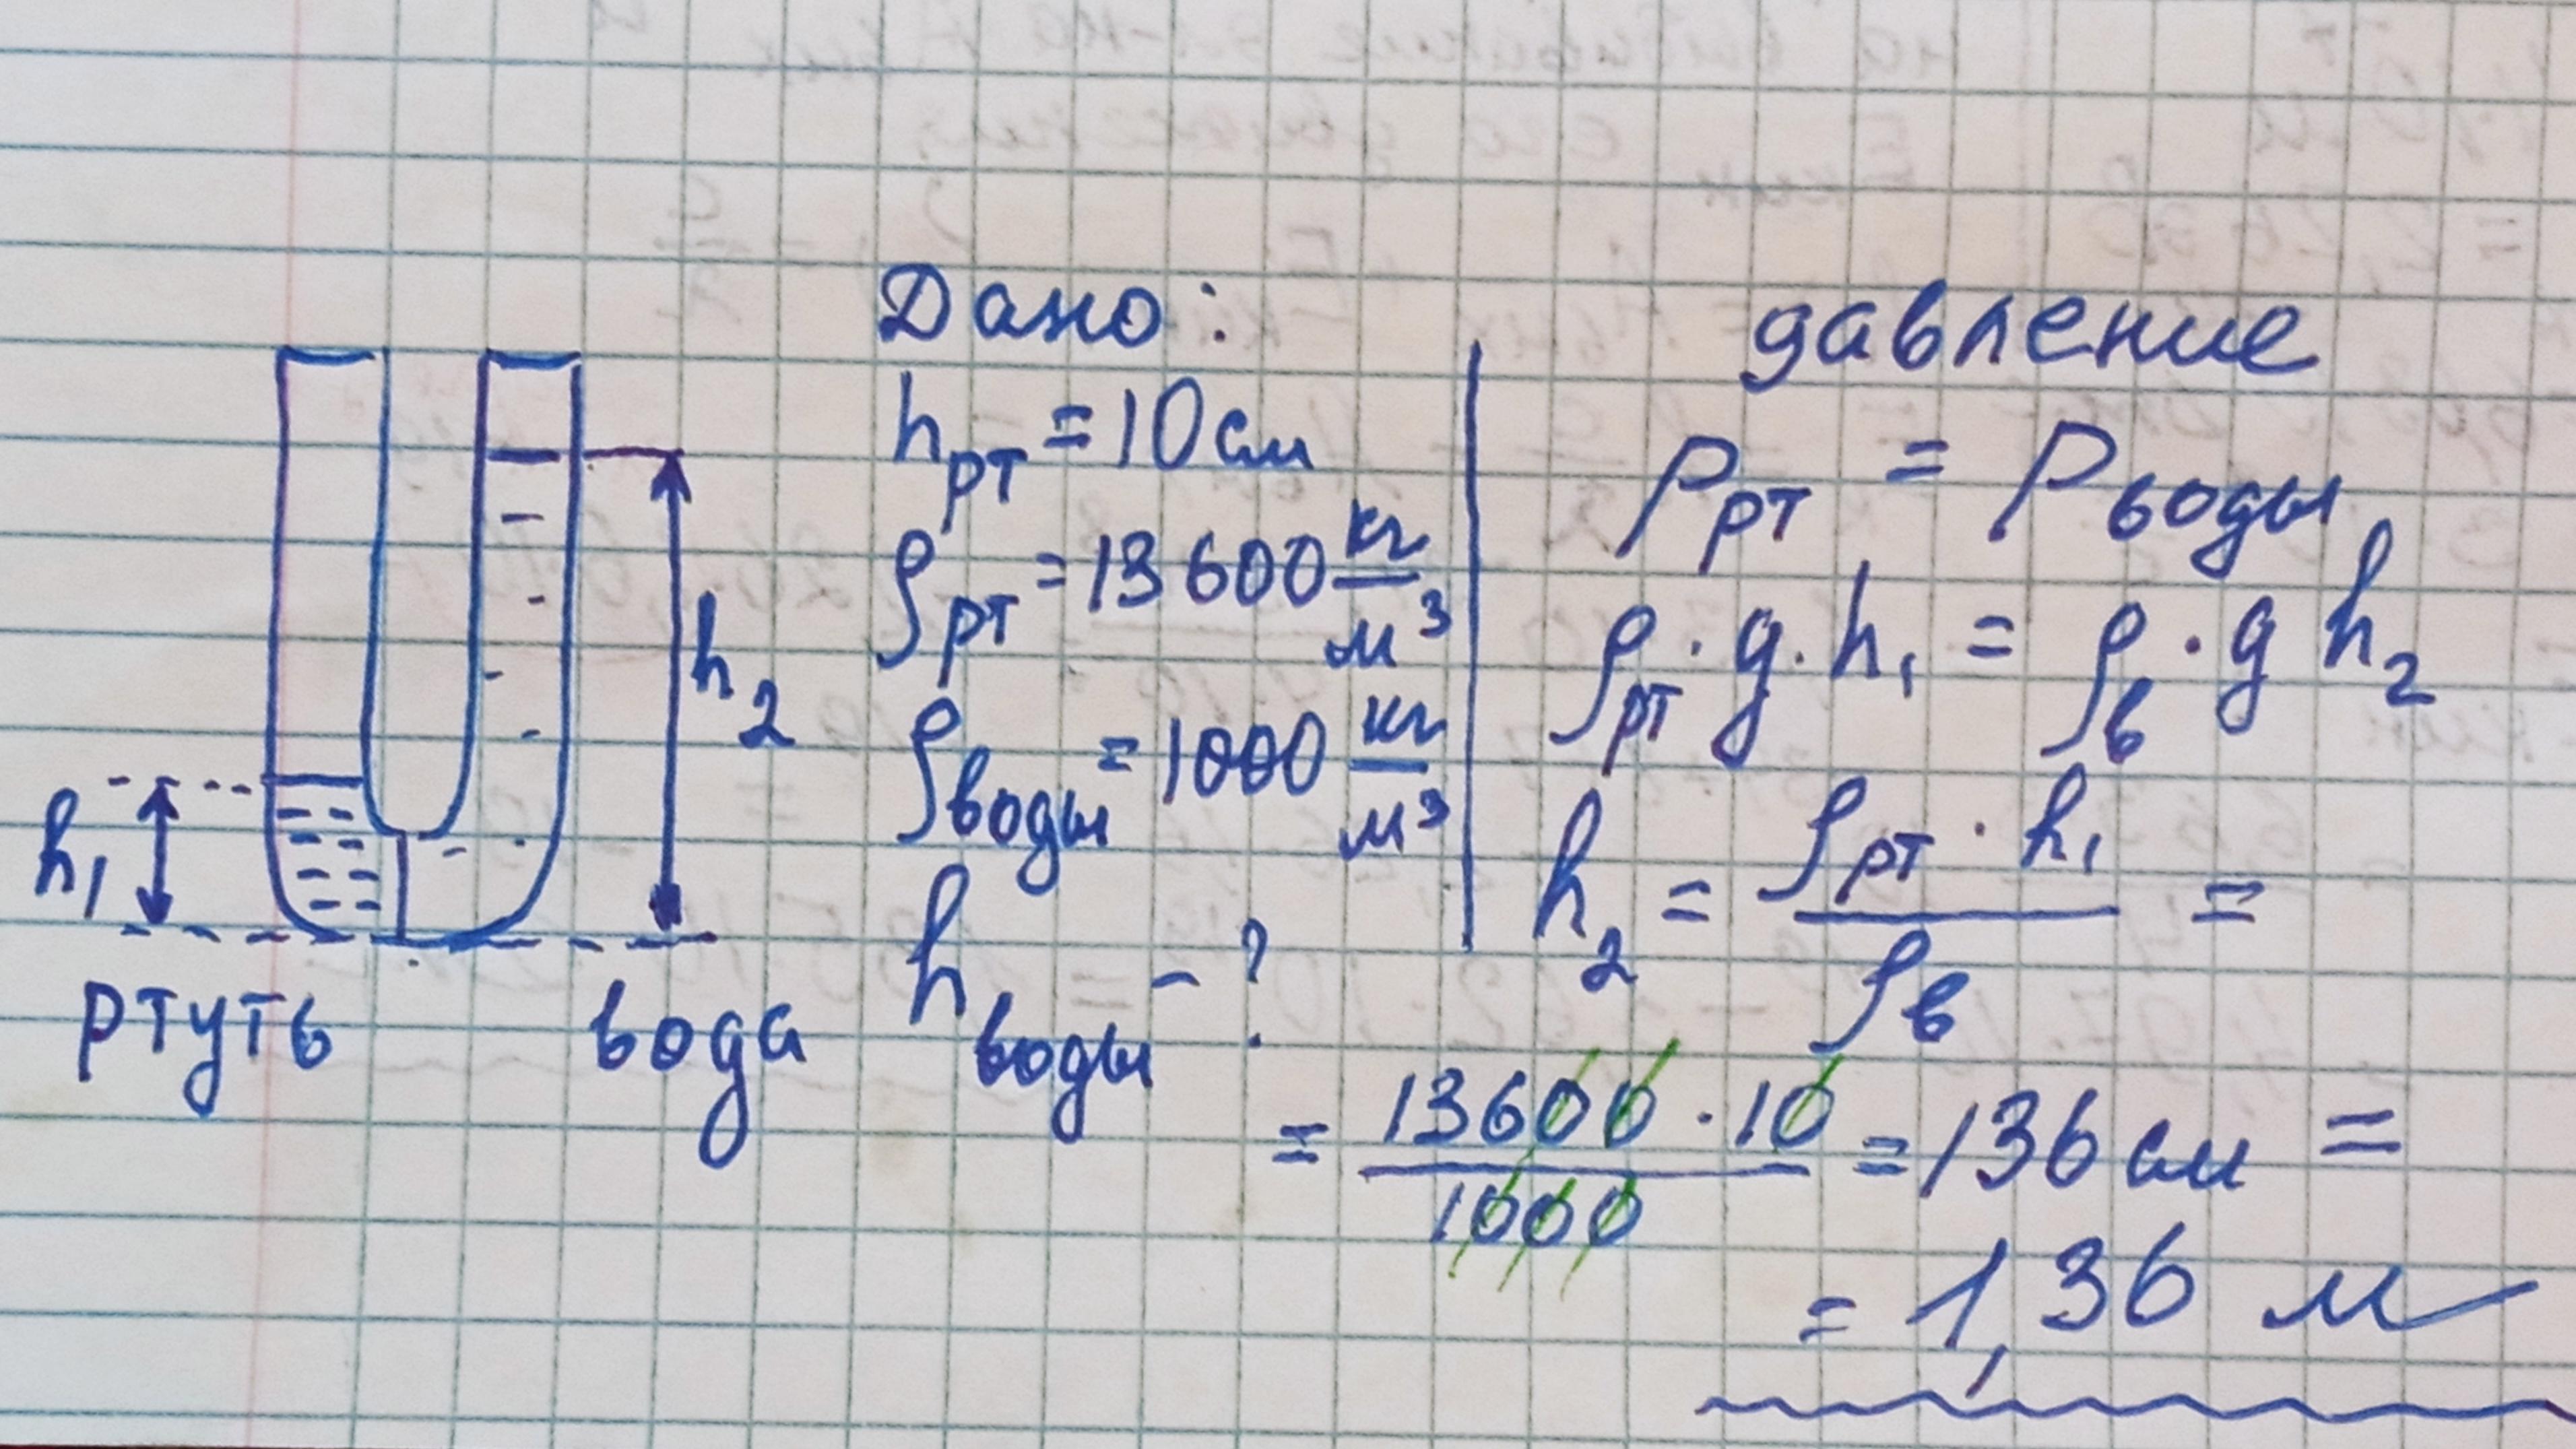 h₁
h₂
ртуть вода
Дано:
hрт = 10 см
ρрт = 13 600 кг/м³
ρводы = 1000 кг/м³
hводы - ?
давление
Pрт = Pводы
ρрт · g · h₁ = ρв · g h₂
h₂ = ρрт · h₁ / ρв =
= 13600 · 10 / 1000 = 136 см =
= 1,36 м